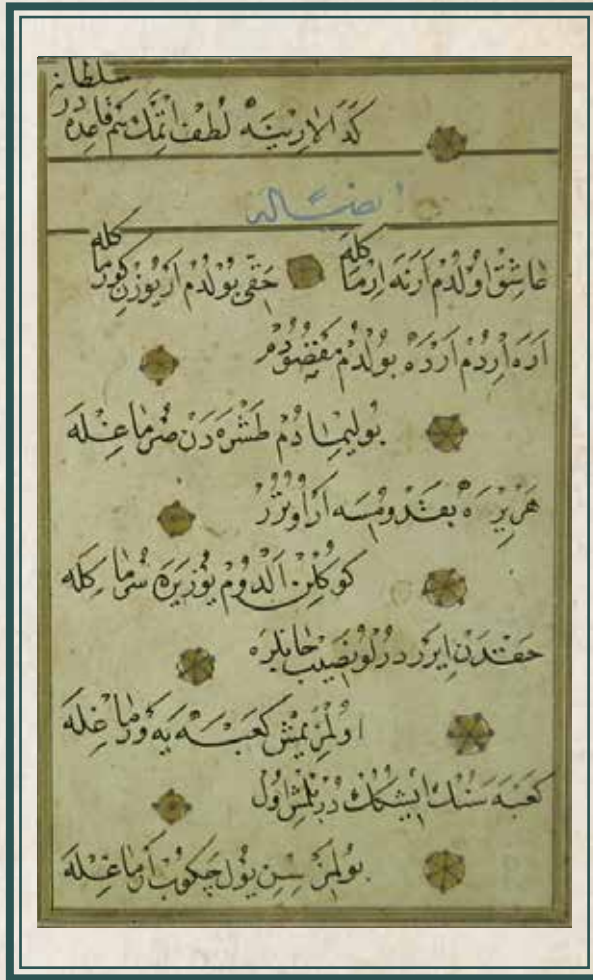 سلطانه
كدالارينه لطف اتمك هم قاعده در
ايضا له
عاشق اولدم ارنه ارماكله حقى بولدم ار يوزن كورماكله
اره اردم ارده بولدم مقصودم
بوليمادم طشره دن صرماغله
هر يره بقدومسه ار اوتورر
كوكلن الدوم يوز يره سرماكله
حقدن ايرر درلو نصيب جانلره
اولمز يمش كعبه يه ورماغله
كعبه سنك ايشكك در بلمش اول
بولمز سن يول چكوب ارماغله